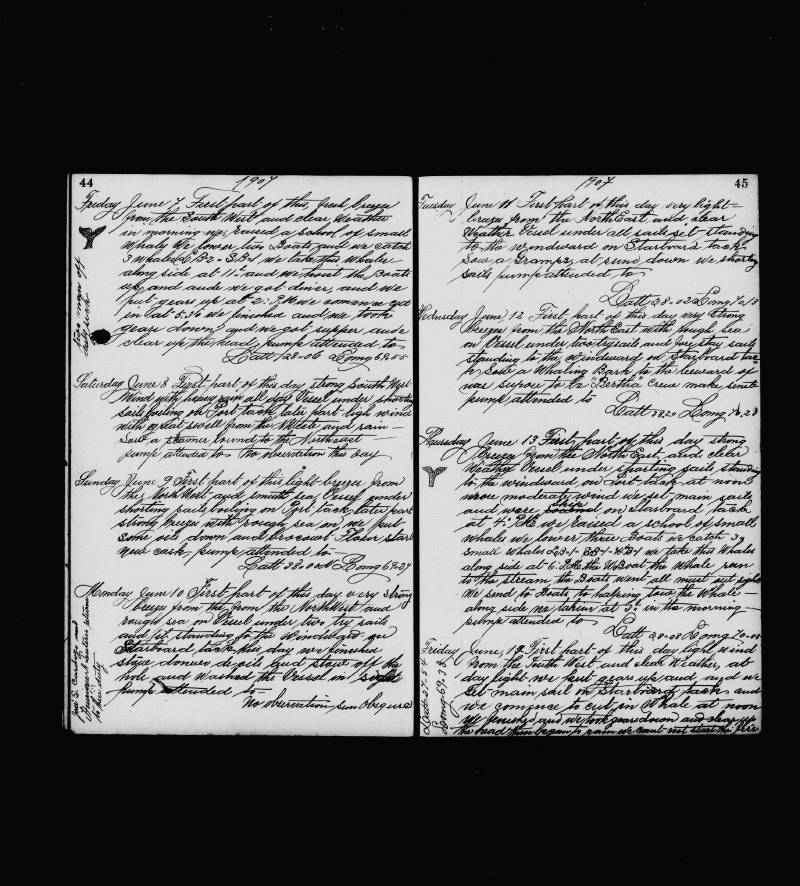 44
1907
Friday June 7 First part of this, fresh breeze
from the South West and clear Weather
in morning we raised a school of small
Whales We lower two Boats and we catch
3 Whales LB-2 - SB-1 we take this Whales
along side at 11: and we hoist the Boats
up and aude we got diner, and we
put gears up at 2: P.M we comence cut
in at 5:30 we finished and we took
gears down and we got supper aude
clear up the head, pump attended to
Latt 38-06 Long 69.55
two man off
duty sick
Saturday June 8 First part of this day strong South West
Wind with heavy rain all day Vessel under shorting
sails on Port tack, later part ligh wind
with great swell from the Weste and rain
Saw a steamer bound to the Northeast
pump attended to No observation this day
Sunday June 9 First part of this light breeze from
the North West and smuth sea, Vessel under
shorting sails on Port tack later part
strong breeze with rough sea on we put
some oile down and
new cask, pump attended to
Latt 38.00 N Long 69.29
Monday June 10 First part of this day very strong
breeze from the from the NorthWest and
rough sea on Vessel under two try sails
and standing to the Windward on
Starboard tack, this day we finished
stow donwe de oile and stove off the
hole and Washed the Vessel in sight
pump attended to
No observation sun Obsqured
and
to their duty
45
1907
Tuesday June 11 First part of this day very light
breeze from the NorthEast and clear
Weather Vessel under all sails set standing
to the windward on Starboard tack
Saw a Gramps, at sund down we shorting
sails pump attended to
Latt 38-02 Long
Wednesday June 12 First part of this day very strong
breeze from the NorthEast with rough sea
on Vessel under two trysails and sails
standing to the Windward on Starboard tac
k Saw a Whaling Bark to the leeward of
was supose to be Bertha Crew make sinete
pump attended to
Latt Long
Thursday June 13 First part of this day strong
Breeze from the North East and clear
Weather Vessel under shorting sails standing
to the windward on Port tack at noon
more moderate wind we set main sails
and were ship on starboard tack
at 4: P.M we raised a school of small
whales we lower three Boats we catch 3
small Whales LB-1- BB-1- WB-1 we take this Whales
along side at 6: P.M. the W.Boat the Whale run
to the stream the Boats went all must out sight
We send to Boats to helping tow the Whale
along side we taken at 3: in the morning
pump attended to
Latt Long
Friday June, 14 First part of this day light wind
From the West and clear Weather, at
day light we put gears up and and we
set main sail on Starboard tack and
we comence to cut in Whale at noon
we finished and we took gears down and clear up
the head then began to rain we cant not start the fire
Latt
Long 69.38